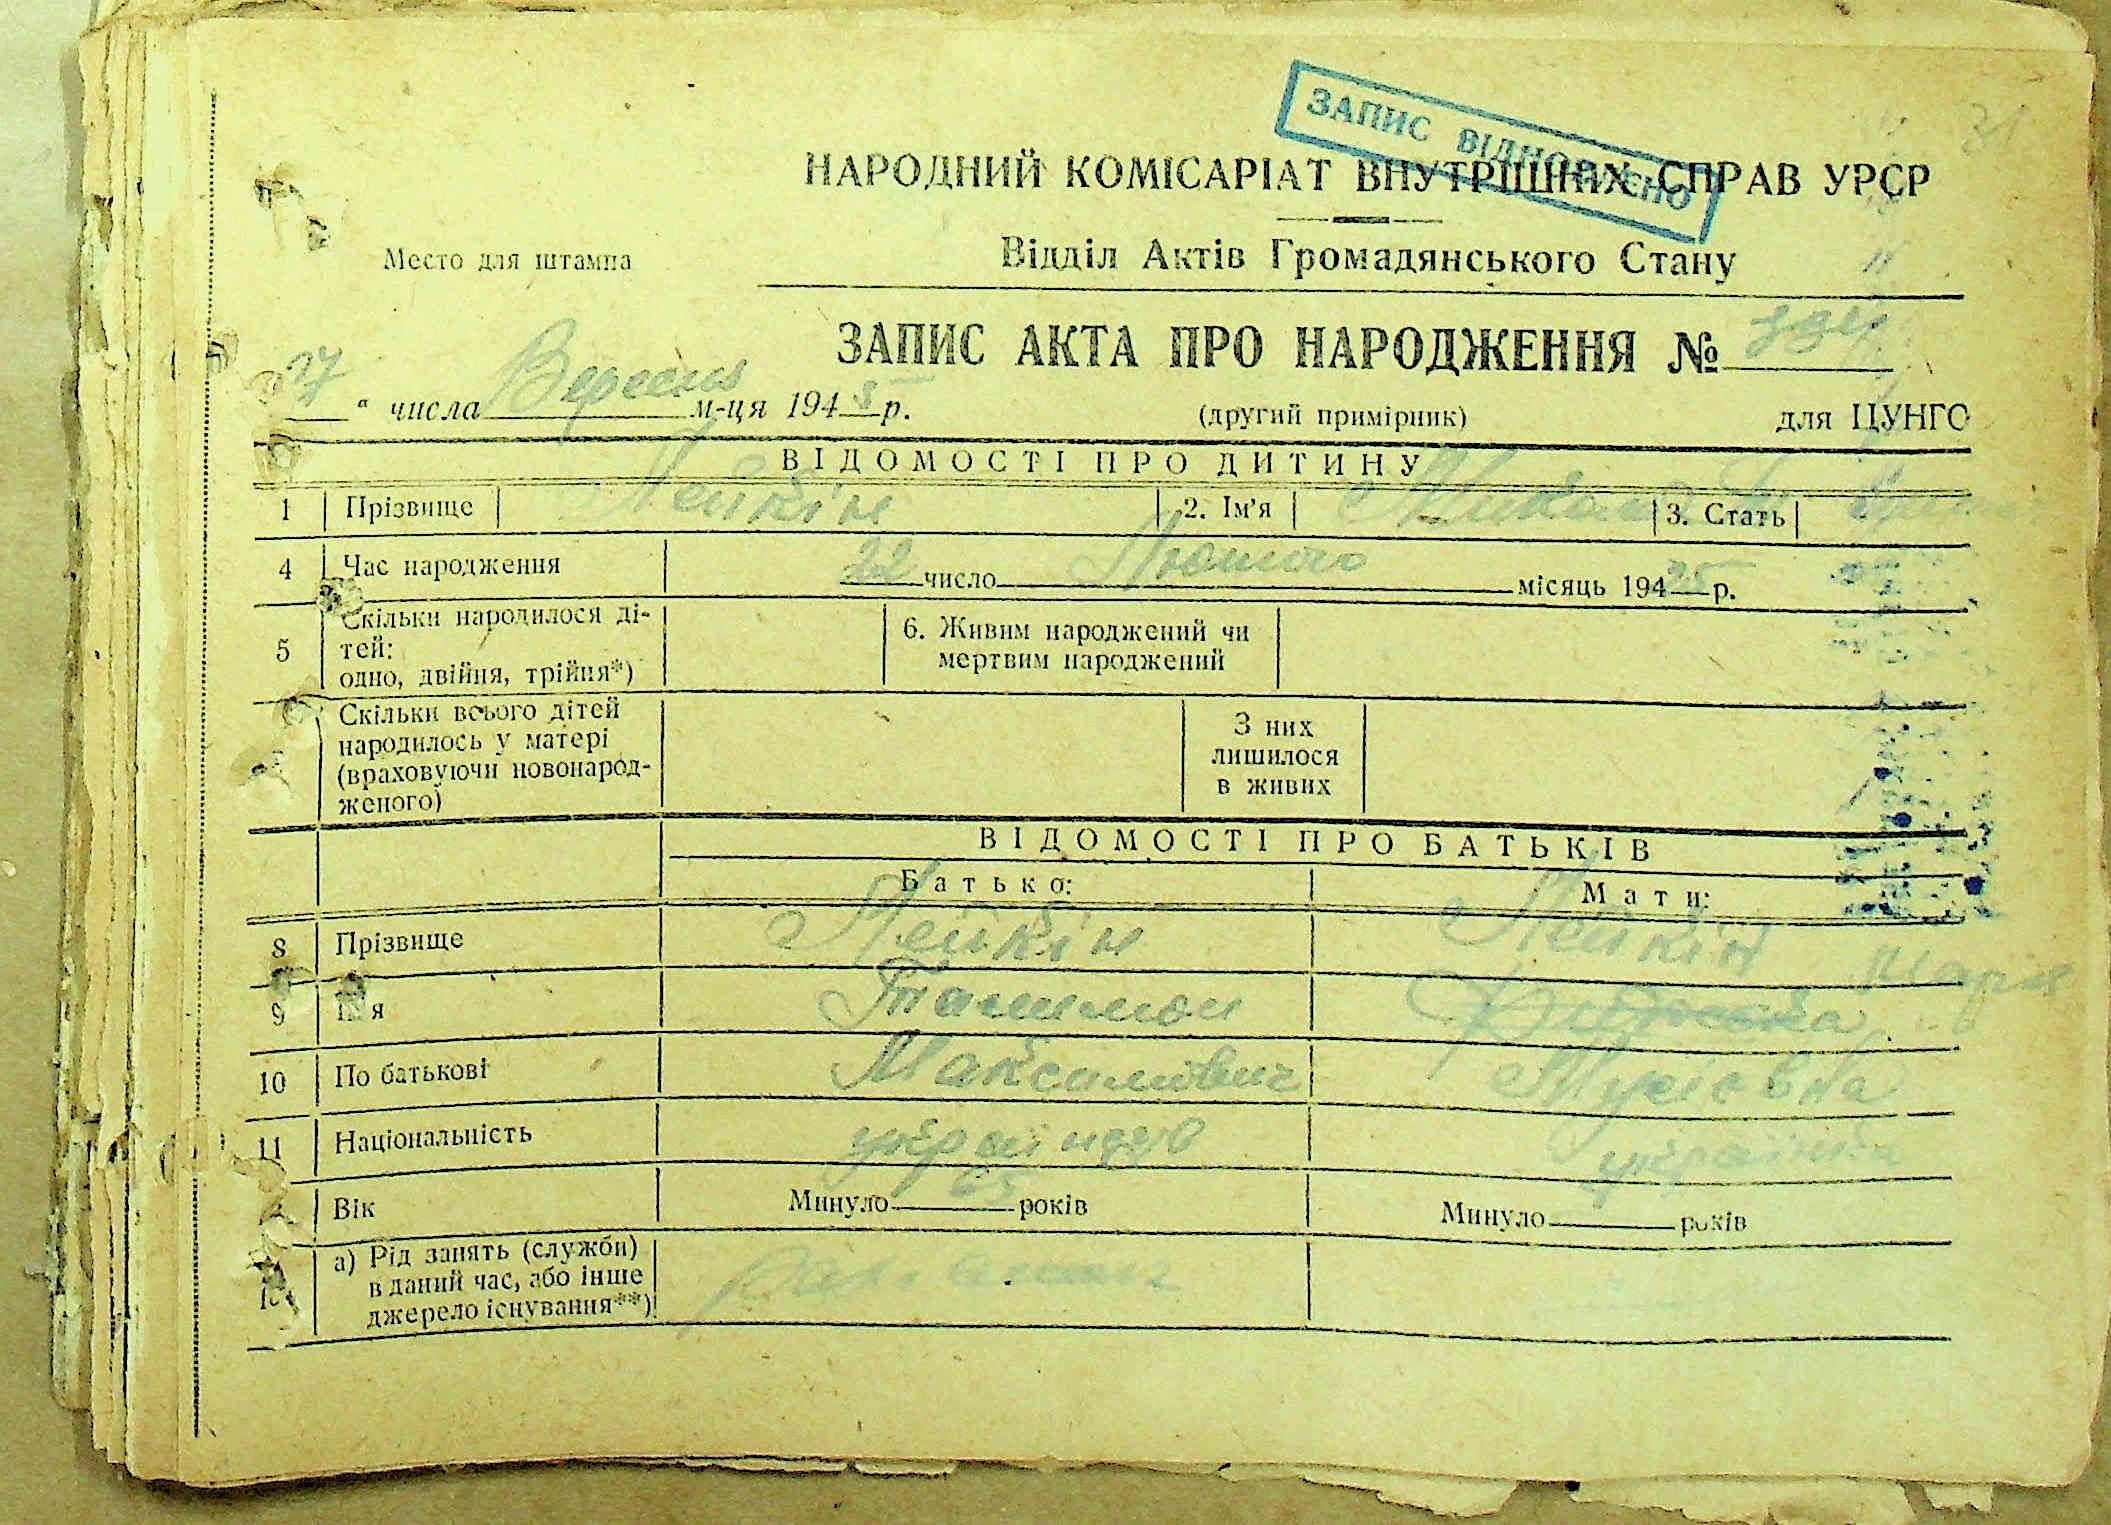 31
ЗАПИС ВІДНОВЛЕНО
НАРОДНИЙ КОМІСАРІАТ ВНУТРІШНІХ СПРАВ УРСР
Место для штампа
Відділ Актів Громадянського Стану
ЗАПИС АКТА ПРО НАРОДЖЕННЯ №
" числа Вересня м-ця 194 р.
(другий примірник)
для ЦУНГО
ВІДОМОСТІ ПРО ДИТИНУ
1 Прізвище Лейкін 2. Ім'я Микола 3. Стать
4 Час народження 22 число Лютого місяць 194 25 р.
5 Скільки народилося дітей: одно, двійня, трійня*) 6. Живим народжений чи мертвим народжений
Скільки всього дітей народилось у матері (враховуючи новонародженого) З них лишилося в живих
ВІДОМОСТІ ПРО БАТЬКІВ
Батько: Мати:
8 Прізвище Лейкін Лейкін
9 Ім'я Марія
10 По батькові Максимович Мусієвна
11 Національність українець українка
Вік Минуло років Минуло років
а) Рід занять (служби) в даний час, або інше джерело існування**)